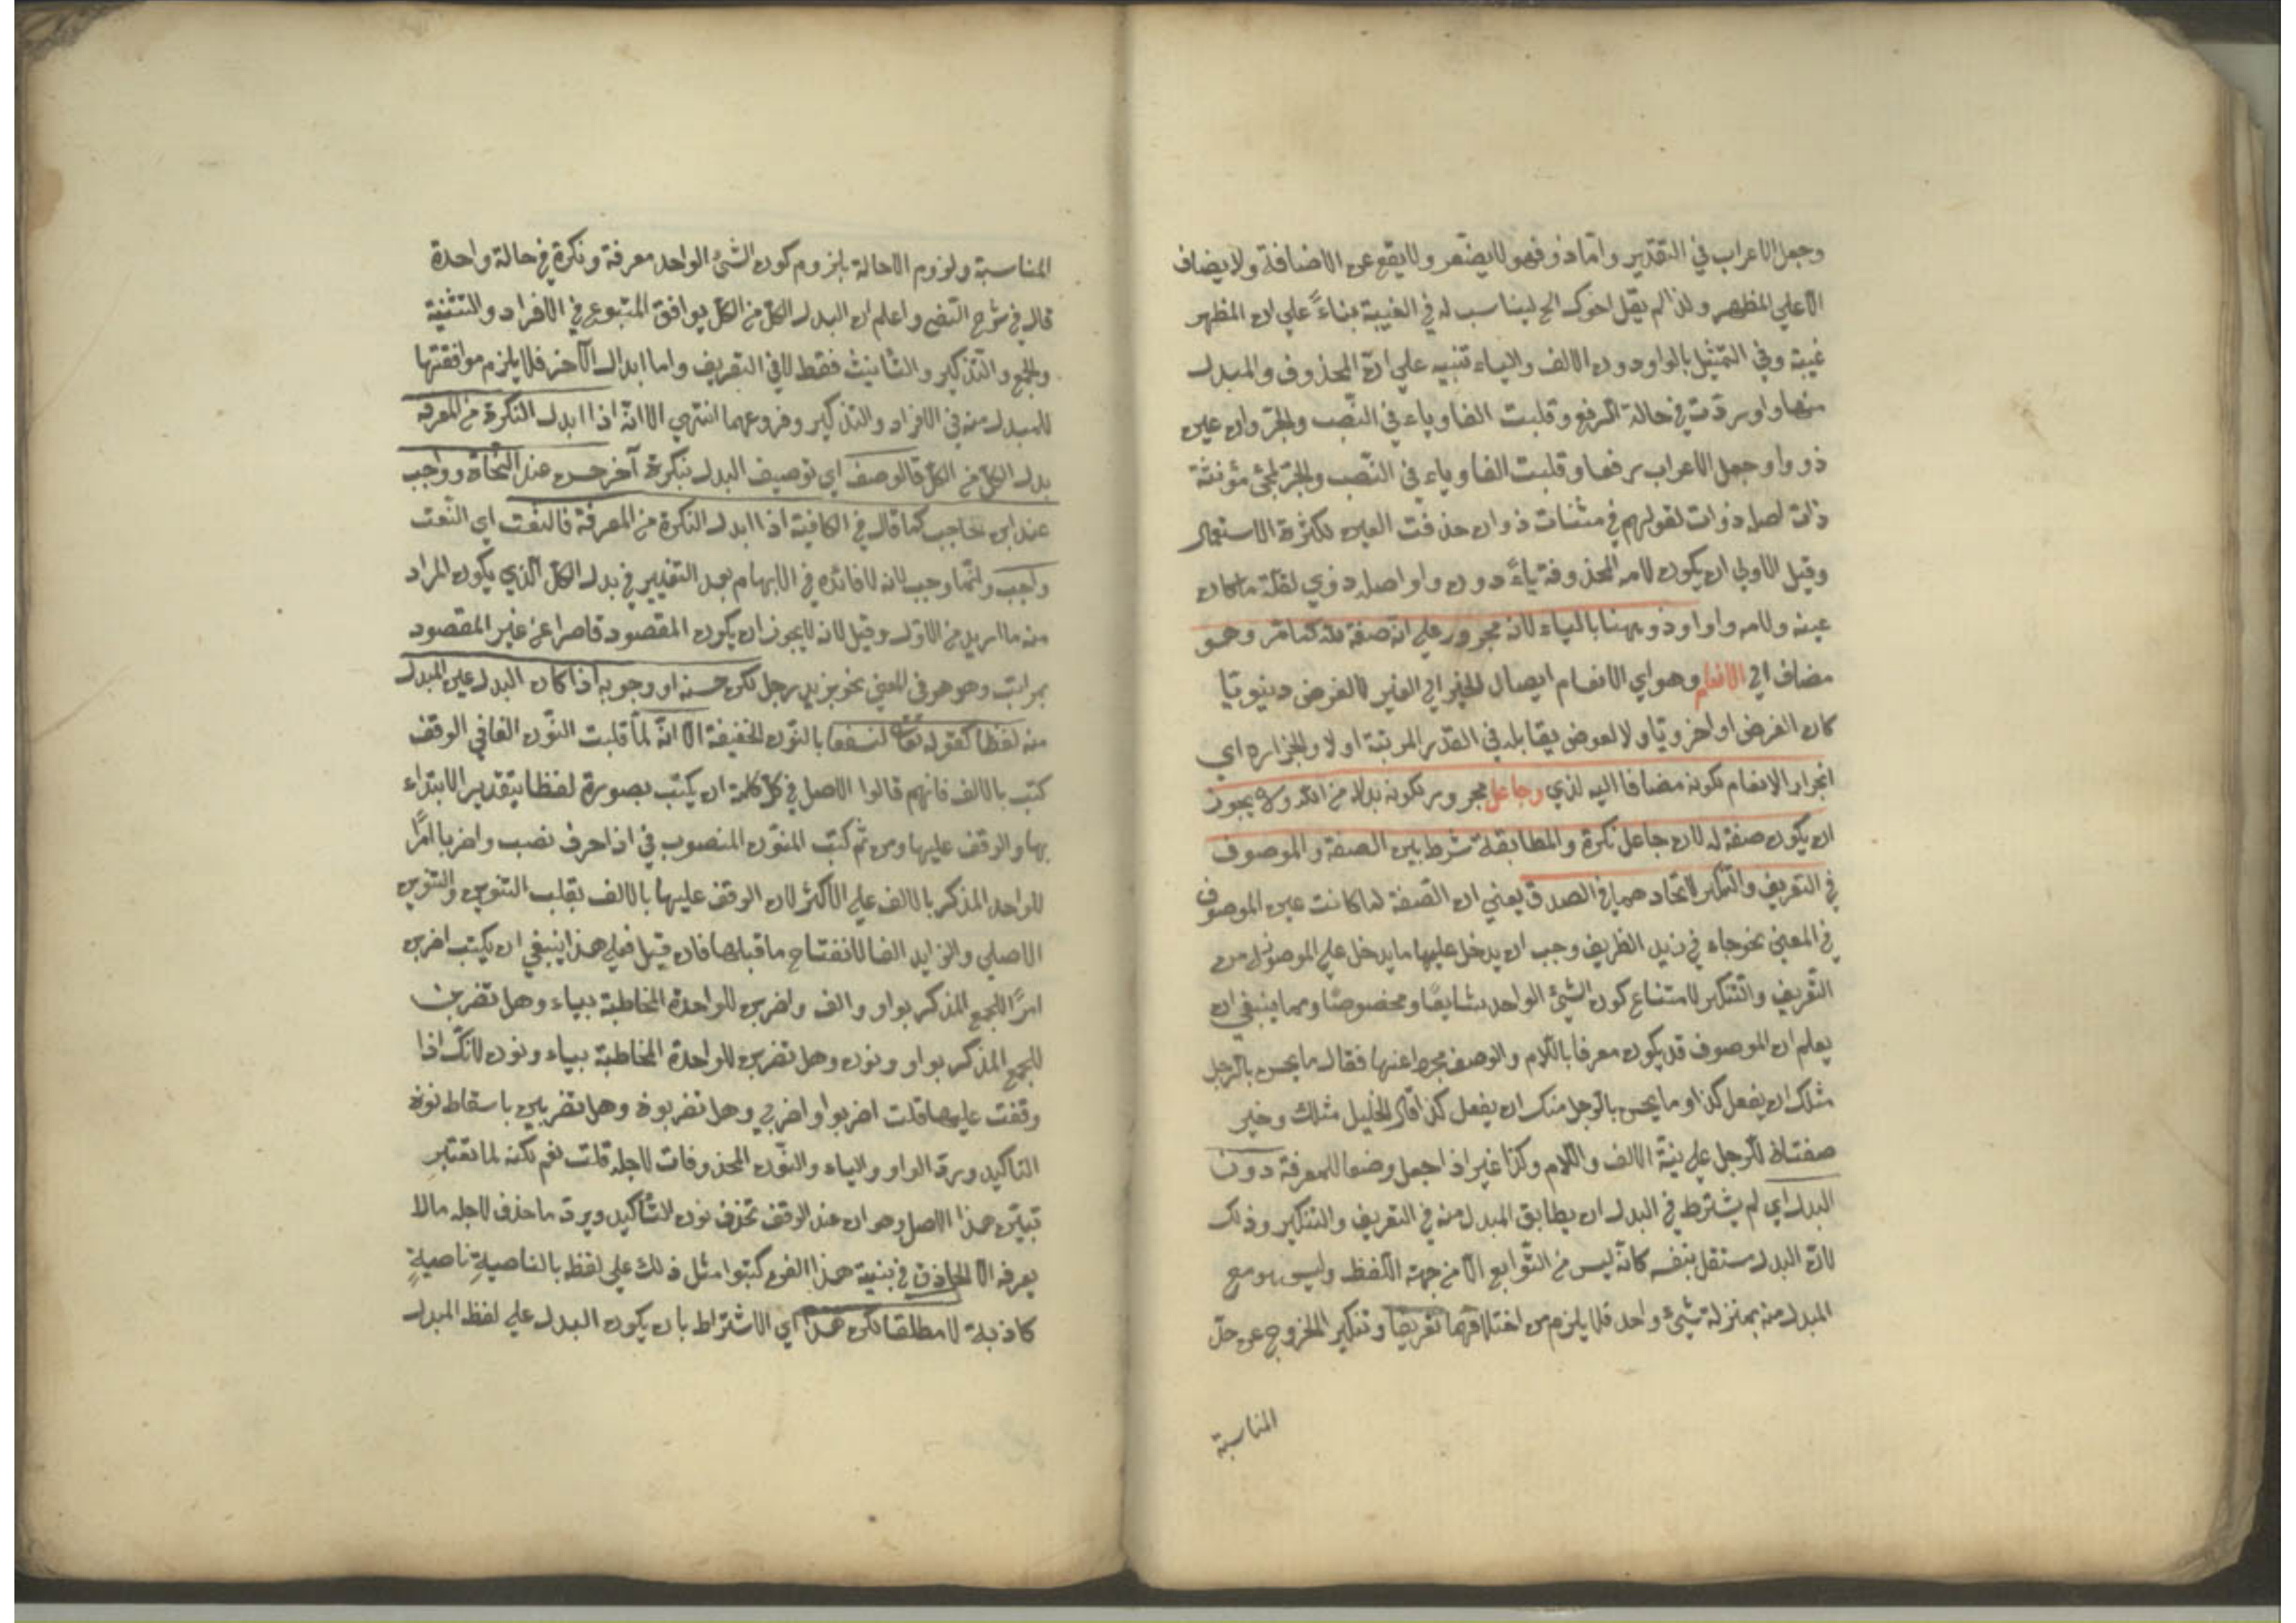 وجعل الاعراب في التقدير واما ذو فهو لا يضمر ولا يقع عن الاضافة ولا يضاف
الا علي المظهر ولذا لم يقل اخوك الخ ليناسب له في الغيبة بناءً علي ان المظهر
غيبة وفي التمثيل بالواو دون الالف والياء تنبيه علي انّ المحذوف والمبدل
منها واو ردّت في حالة الرفع وقلبت الفا وياء في النّصب والجرّ وان عين
ذو واو وجعل الاعراب رفعا وقلبت الفا وياء في النّصب والجرّ لمجئ مؤنثة
ذات اصله ذوات لقولهم في مثنات ذوان حذفت العين لكثرة الاستعمال
وقيل الاولي ان يكون لامه المحذوفة ياءً دون واو اصله ذوي لقلة ما كان
عينه ولامه واوا وذو ههنا بالياء لانه مجرور علي انه صفة لله كما مرّ وهو
مضاف الي الانعام وهو اي الانعام ايصال الخير الي الغير لا لغرض دينويّا
كان الغرض او اخرويّا ولا لعوض يقابله في القدر المرتبة اولا والجراره اي
انجرار الانعام لكونه مضافا اليه لذي وجاعل مجرور لكونه بدلا من الله ولا يجوز
ان يكون صفة له لان جاعل نكرة والمطابقة شرط بين الصفة والموصوف
في التعريف والتنكير لاتحادهما في الصدق يعني ان الصفة لما كانت عين الموصوف
في المعني نحو جاء في زيد الظريف وجب ان يدخل عليها ما يدخل علي الموصوف من
التّعريف والتنكير لامتناع كون الشئ الواحد شايعًا ومخصوصًا ومما ينبغي ان
يعلم ان الموصوف قد يكون معرفا باللام والوصف مجردا عنها فقال ما يحسن بالرجل
مثلك ان يفعل كذا وما يحسن بالرجل منك ان يفعل كذا قال الخليل مثلك وخير
صفتان للرجل علي نيّة الالف واللام وكذا غير اذ اجعل وضعا للمعرفة دون
البدل اي لم يشترط في البدل ان يطابق المبدل منه في التعريف والتنكير وذلك
لانّ البدل مستقل بنفسه كانّه ليس من التّوابع الّا من جهة اللفظ وليس هو مع
المبدل منه بمنزلة شيئ واحد فلا يلزم من اختلافهما تعريفا وتنكير الخروج عن حدّ
المناسبة
المناسبة ولزوم الاحالة بلزوم كون الشئ الواحد معرفة ونكرة في حالة واحدة
قال في شرح واعلم ان البدل الكلّ من الكلّ يوافق المتبوع في الافراد والتثنية
والجمع والتذكير والتأنيث فقط لا في التعريف واما ابدال الآخر فلا يلزم موافقتها
للمبدل منه في الافراد والتذكير وفروعهما انتهي الا انّه اذا ابدل النكرة من المعرفة
بدل الكلّ من الكلّ فالوصف اي توصيف البدل بنكرة آخر حسن عند النّحاة وواجب
عند ابن حاجب كما قال في الكافية اذا ابدل النكرة من المعرفة فالنعت اي النّعت
واجب وانّما وجب لانه لا فائدة في الابهام بعد التفسير في بدل الكلّ الّذي يكون المراد
منه ما اريد من الاوّل وقيل لانه لا يجوز ان يكون المقصود قاصرا عن غير المقصود
بمراتب وهو هو في المعني نحو بزيد رجل لكن حسنه او وجوبه اذا كان البدل عين المبدل
منه لفظا كقوله تعالي لنسفعا بالنّون الخفيفة الّا انّه لمّا قلبت النّون الفا في الوقف
كتب بالالف فانهم قالوا الاصل في كلّ كلمة ان يكتب بصورة لفظها بتقدير الابتداء
بها والوقف عليها ومن ثمّ كتب المنوّن المنصوب في اذا حرف نصب واضربا امرًا
للواحد المذكر بالالف علي الاكثر لان الوقف عليها بالالف بقلب التنوين والنون
الاصلي والزايد الفا لانفتاح ما قبلها فان قيل فعلي هذا ينبغي ان يكتب اضربن
امرًا للجمع المذكر بواو والف واضربن للواحدة المخاطبة بياء وهل تضربن
للجمع المذكر بواو ونون وهل تضربن للواحدة المخاطبة بياء ونون لانّك اذا
وقفت عليها قلت اضربوا واضربي وهل تضربون وهل تضربين باسقاط نون
التأكيد وردّ الواو والياء والنّون المحذوفات لاجله قلت نعم لكنه لما تعتبر
تبيّن هذا الاصل وهو ان عند الوقف تحذف نون التأكيد ويردّ ما حذف لاجله مالا
يعرفه الا الحاذق في بنية هذا الفن كتبوا مثل ذلك علي لفظه بالناصية ناصيةٍ
كاذبة لا مطلقا لكن هذا اي الاشتراط بان يكون البدل علي لفظ المبدل